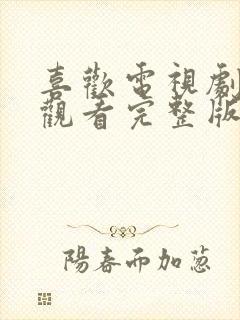 喜歡電視劇
觀看完整版
陽春而加蔥